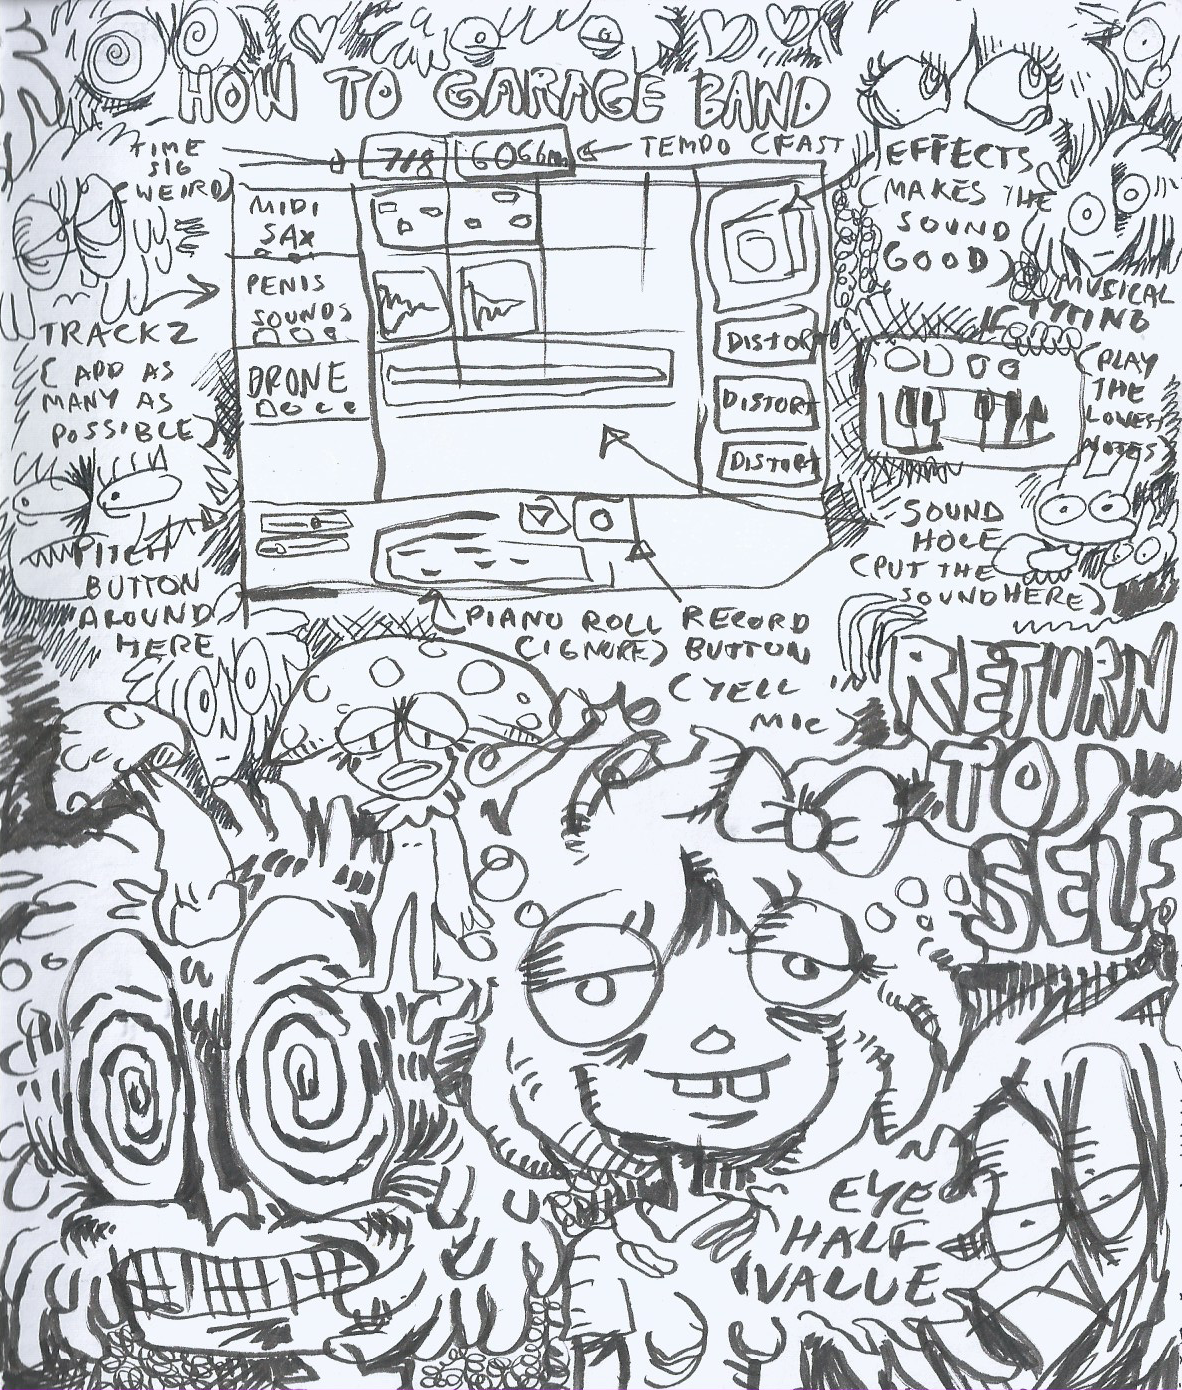 HOW TO GARAGE BAND
TIME
SIG
(WEIRD)
7/8
TEMPO (FAST
EFFECTS
(MAKES THE
SOUND
GOOD)
MIDI
SAX
PENIS
SOUNDS
DRONE
DISTORT
DISTORT
DISTORT
TRACKZ
(ADD AS
MANY AS
POSSIBLE)
MUSICAL
TYPING
(PLAY
THE
LOWEST
NOTES)
SOUND
HOLE
(PUT THE
SOUND HERE)
PITCH
BUTTON
AROUND
HERE
PIANO ROLL
(IGNORE)
RECORD
BUTTON
(YELL IN
MIC)
RETURN
TO
SELF
EYE
HALF
VALUE